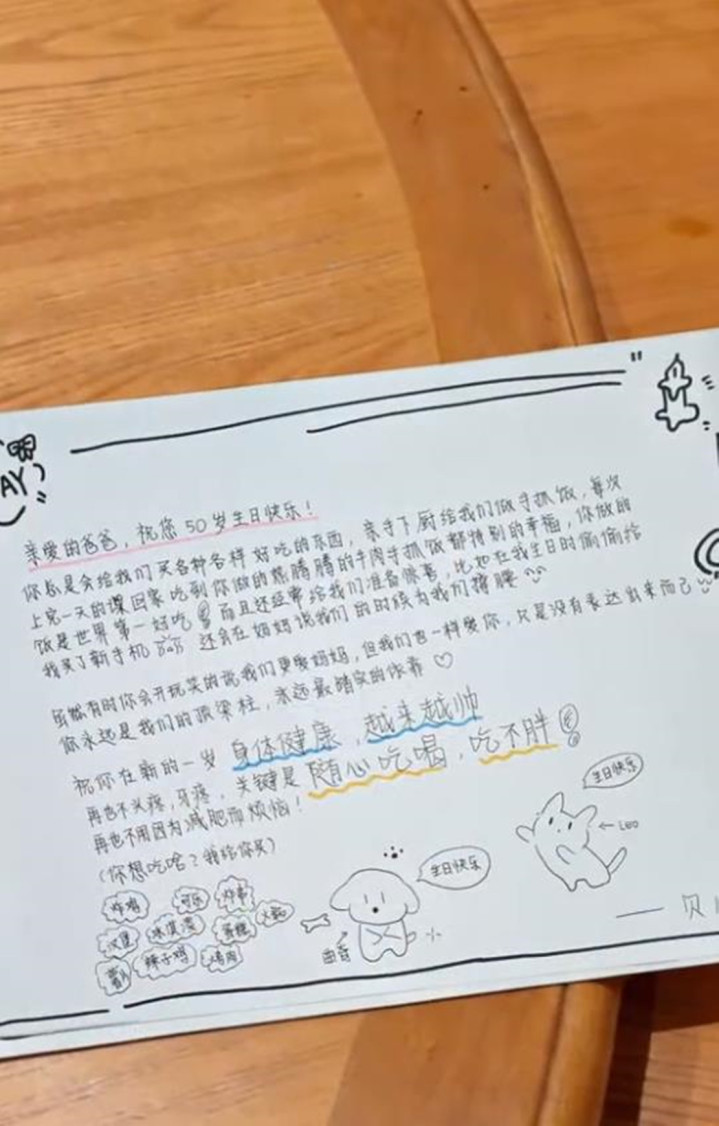 亲爱的爸爸，祝您50岁生日快乐！
你总是会给我们买各种各样好吃的东西，亲手下厨给我们做手抓饭，每次
上完一天的课回家吃到你做的热腾腾的牛肉手抓饭都特别的幸福，你做的
饭是世界第一好吃 而且还经常给我们准备惊喜，比如在我生日时偷偷给
我买了新手机 还会在妈妈说我们的时候为我们撑腰
虽然有时你会开玩笑的说我们更爱妈妈，但我们也一样爱你，只是没有表达出来而已
你永远是我们的顶梁柱，永远最踏实的依靠♡
祝你在新的一岁 身体健康，越来越帅
再也不头疼，牙疼，关键是 随心吃喝，吃不胖
再也不用因为减肥而烦恼！
（你想吃啥？我给你买）
炸鸡 可乐 炸串
汉堡 冰淇淋 蛋糕 火锅
薯片 辣子鸡 烤肉
生日快乐
曲奇
生日快乐
← Leo
—— 贝
AY